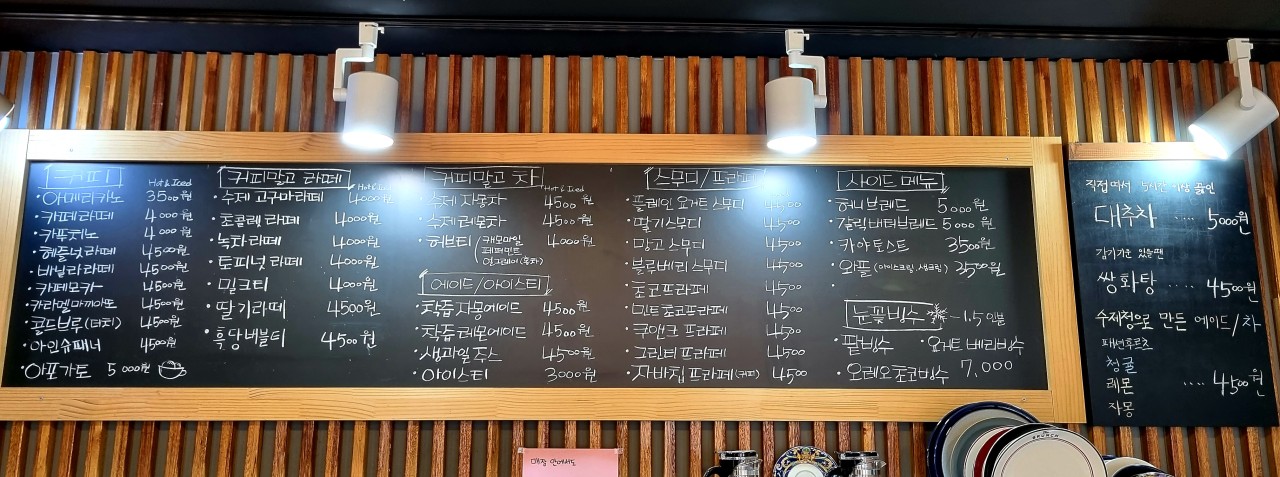 커피
Hot & Iced
·아메리카노 3500원
·카페라떼 4000원
·카푸치노 4000원
·헤즐넛라떼 4500원
·바닐라라떼 4500원
·카페모카 4500원
·카라멜마끼아또 4500원
·콜드브루(더치) 4500원
·아인슈패너 4500원
·아포가토 5000원
커피말고 라떼
Hot & Iced
·수제 고구마라떼 4000원
·초콜렛라떼 4000원
·녹차라떼 4000원
·토피넛라떼 4000원
·밀크티 4000원
·딸기라떼 4500원
·흑당버블티 4500원
커피말고 차
Hot & Iced
·수제 자몽차 4500원
·수제레몬차 4500원
·허브티 (캐모마일 4000원
페퍼민트
얼그레이(홍차)
에이드/아이스티
·착즙자몽에이드 4500원
·착즙레몬에이드 4500원
·생과일주스 4500원
·아이스티 3000원
스무디/프라페
·플레인 요거트 스무디 4500
·딸기스무디 4500
·망고 스무디 4500
·블루베리 스무디 4500
·초코프라페 4500
·민트초코프라페 4500
·쿠앤크 프라페 4500
·그린티 프라페 4500
·자바칩프라페(커피) 4500
사이드 메뉴
·허니브레드 5000원
·갈릭버터브레드 5000원
·카야토스트 3500원
·와플(아이스크림.생크림) 2500원
·
눈꽃빙수 -1.5인분
·팥빙수 ·요거트 베리빙수
·오레오초코빙수 7,000
직접 여서 5시간 이상 끓인
대추차 ···· 5000원
감기기운 있을땐
쌍화탕 ···· 4500원
수제청으로 만든 에이드/차
패션후르츠
청귤
레몬 ···· 4500원
자몽
매장 안에서도
BRUNCH